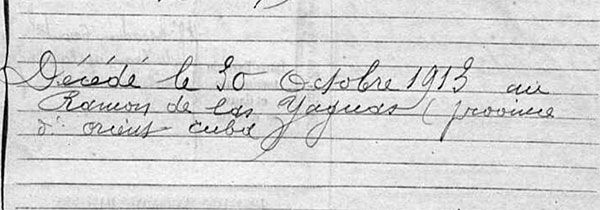 Décédé le 30 Octobre 1913 au
Ramon de las Yaguas (province
d'orient cuba)